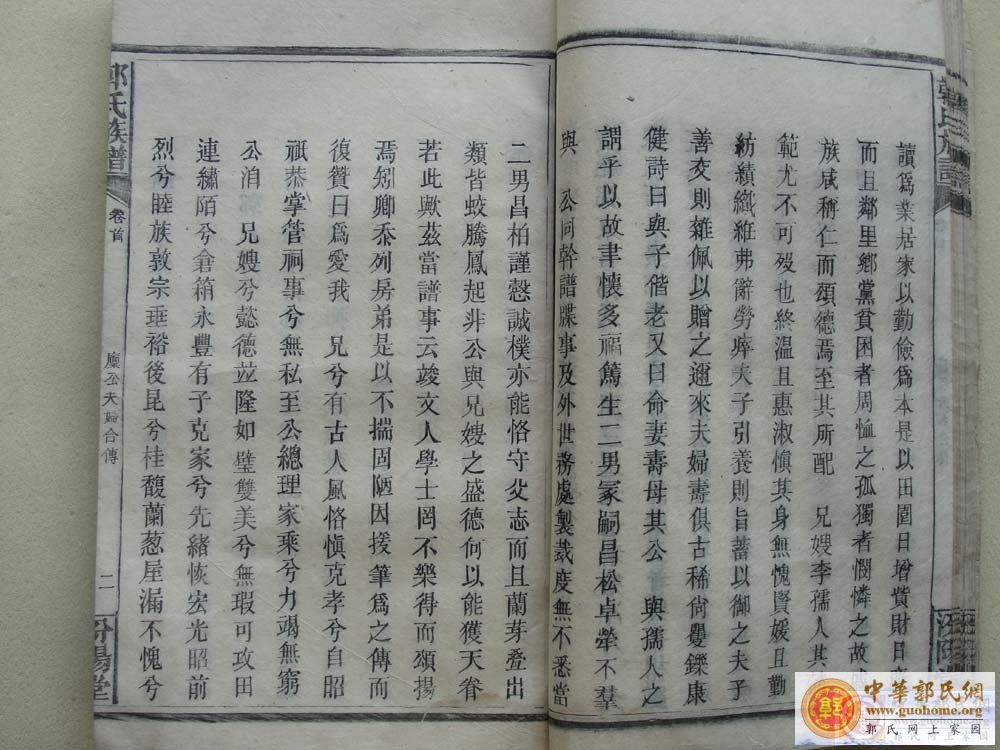 讀爲業居家以勤儉爲本是以田園日增貲財日
而且鄰里鄉黨貧困者周恤之孤獨者憫憐之故
族咸稱仁而頌德焉至其所配 兄嫂李孺人其
範尤不可歿也終温且惠淑愼其身無愧賢媛且勤
紡績織維弗辭勞瘁夫子引養則旨蓄以御之夫子
善交則雜佩以贈之邇來夫婦壽俱古稀尙矍鑠康
健詩曰與子偕老又曰令妻壽母其公 與孺人之
謂乎以故聿懷多福篤生二男冢嗣昌松卓犖不羣
與 公同幹譜牒事及外世務處製裁度無不悉當
二男昌柏謹慤誠樸亦能恪守父志而且蘭芽叠出
類皆蛟騰鳳起非公與兄嫂之盛德何以能獲天眷
若此歟茲當譜事云竣文人學士罔不樂得而頌揚
焉矧卿忝列房弟是以不揣固陋因援筆爲之傳而
復贊曰爲愛我 兄兮有古人風恪愼克孝兮自昭
祇恭掌管祠事兮無私至公總理家乘兮力竭無窮
公洎 兄嫂兮懿德竝隆如璧雙美兮無瑕可攻田
連繡陌兮倉箱永豐有子克家兮先緒恢宏光昭前
烈兮睦族敦宗垂裕後昆兮桂馥蘭葱屋漏不愧兮
郭氏族譜
卷首
公夫婦合傳
二
汾陽堂
中華郭氏網
www.guohome.org
郭氏网上家园